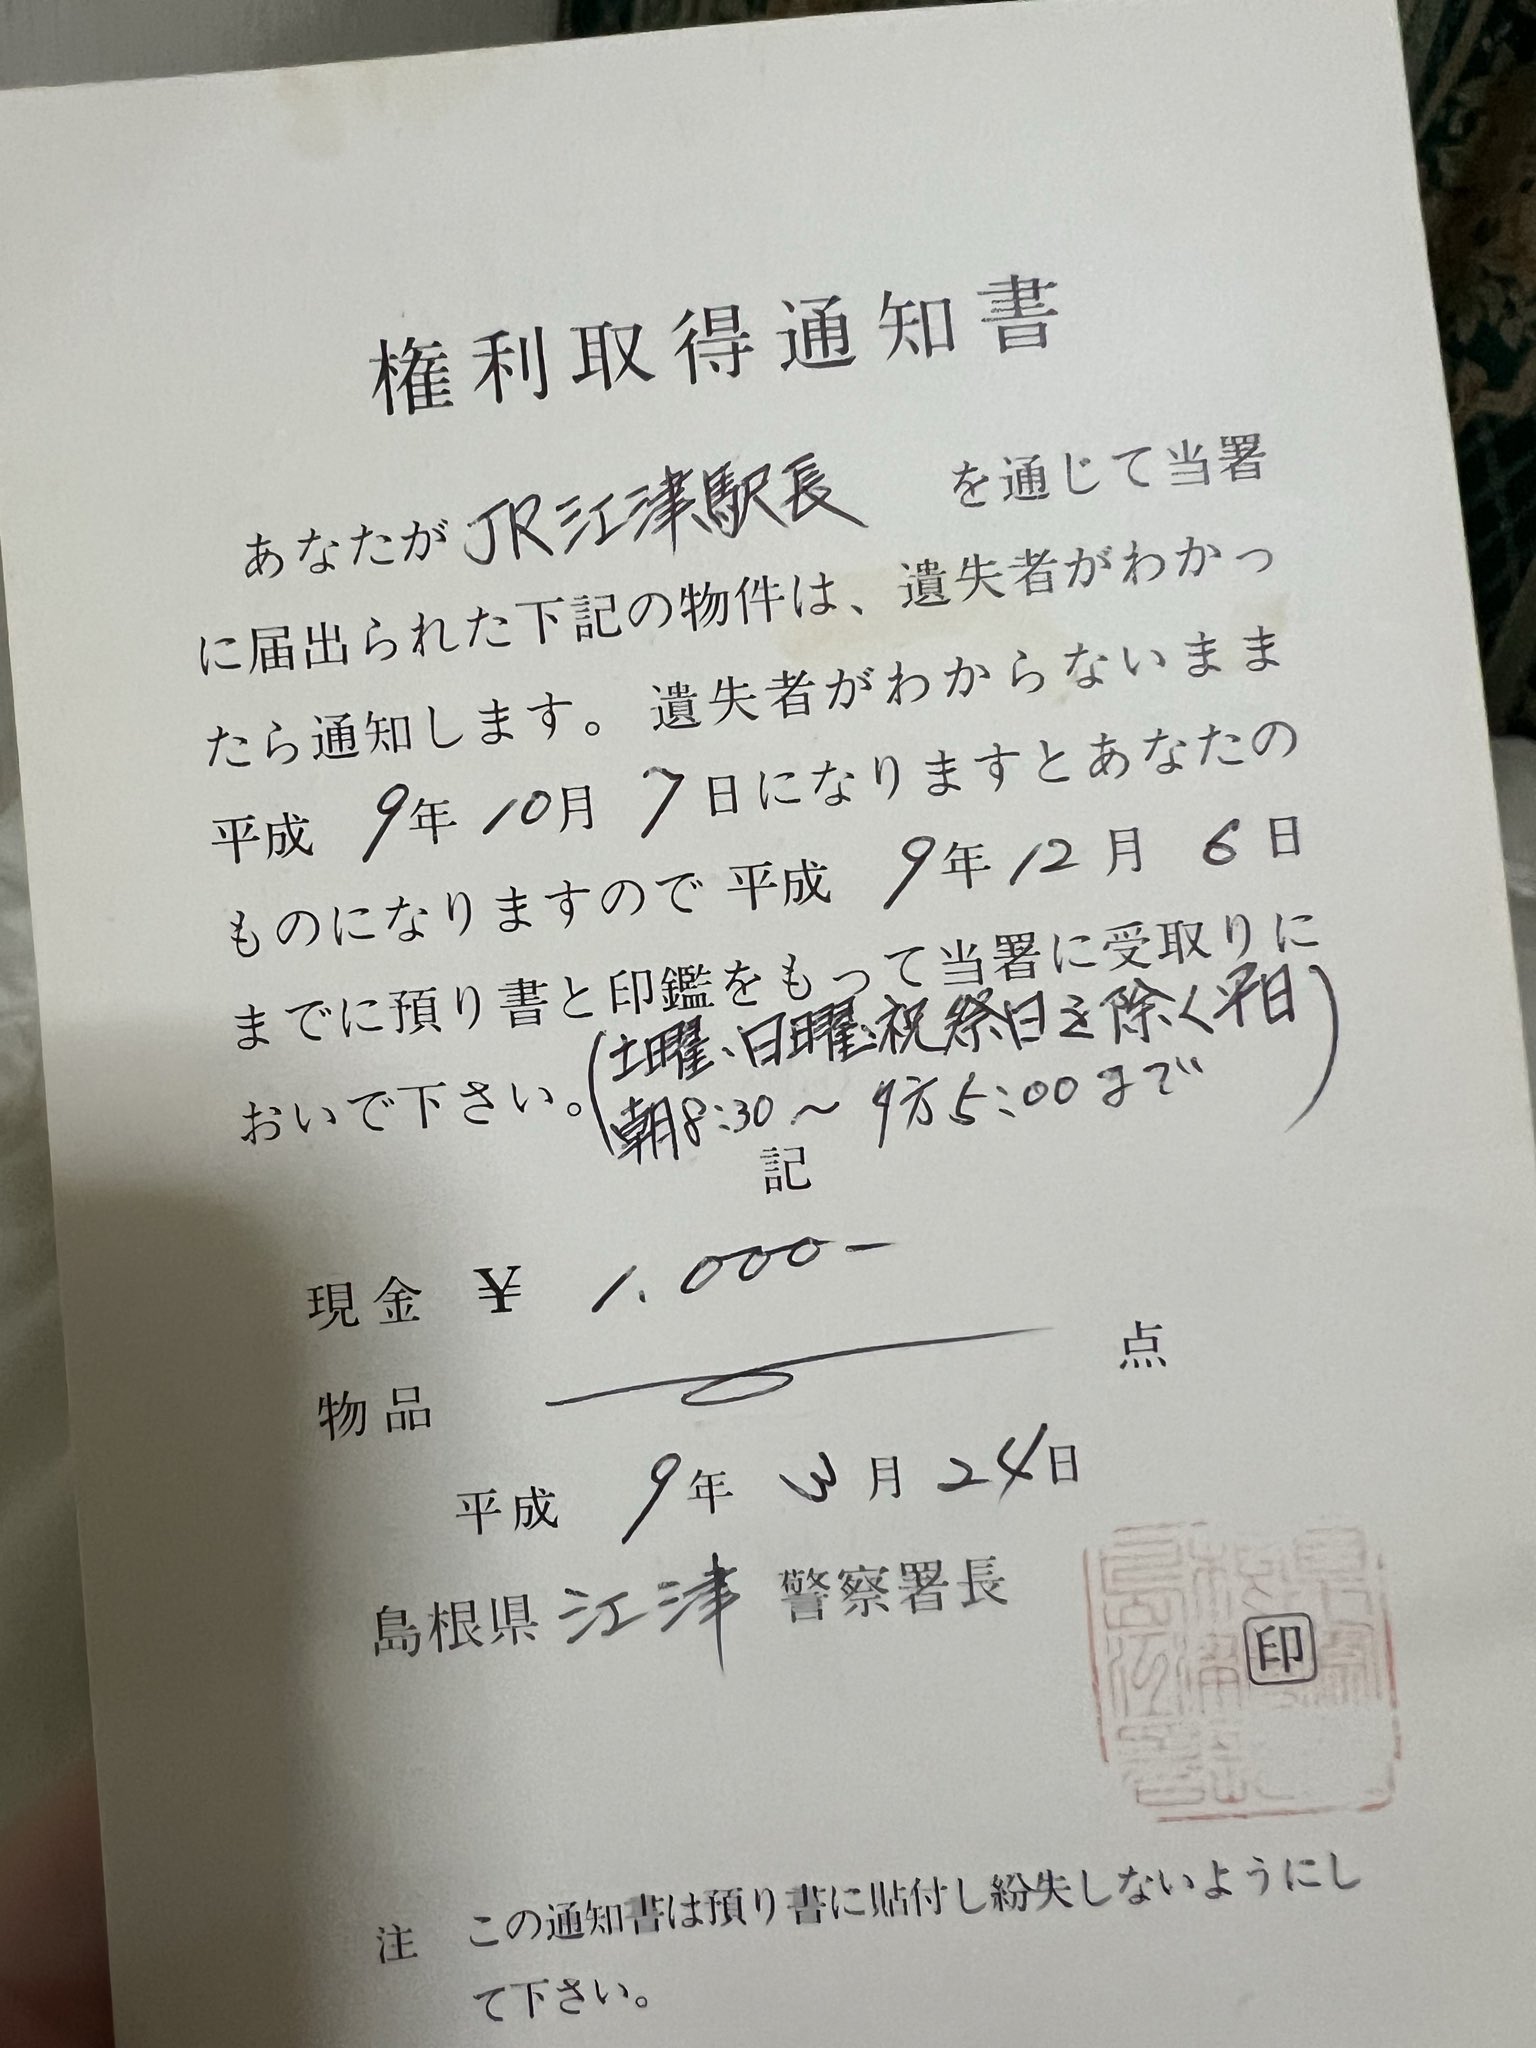 権利取得通知書
あなたがJR江津駅長 を通じて当署
に届出られた下記の物件は、遺失者がわかっ
たら通知します。遺失者がわからないまま
平成 9年 10月 7日になりますとあなたの
ものになりますので 平成 9年 12月 6日
までに預り書と印鑑をもって当署に受取りに
おいで下さい。(土曜、日曜、祝祭日を除く平日
朝8:30～夕方5:00まで)
記
現金 ¥ 1.000-
物品 点
平成 9年 3月 24日
島根県 江津 警察署長
印
注 この通知書は預り書に貼付し紛失しないようにし
て下さい。